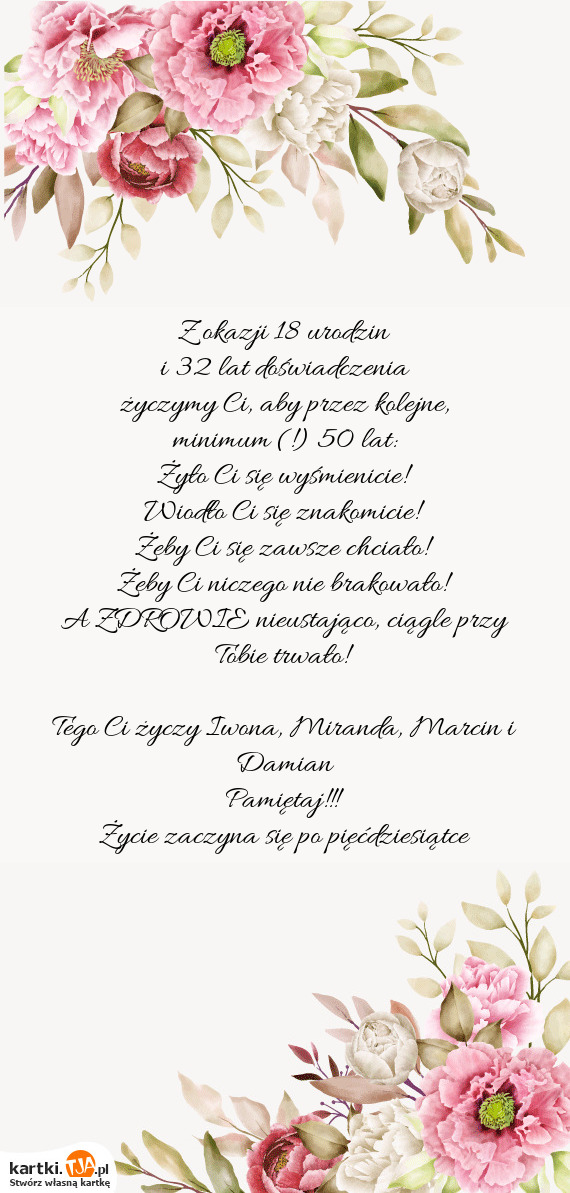 Z okazji 18 urodzin
i 32 lat doświadczenia
życzymy Ci, aby przez kolejne,
minimum (!) 50 lat:
Żyło Ci się wyśmienicie!
Wiodło Ci się znakomicie!
Żeby Ci się zawsze chciało!
Żeby Ci niczego nie brakowało!
A ZDROWIE nieustająco, ciągle przy
Tobie trwało!
Tego Ci życzy Iwona, Miranda, Marcin i
Damian
Pamiętaj!!!
Życie zaczyna się po pięćdziesiątce
kartki.TJA.pl
Stwórz własną kartkę